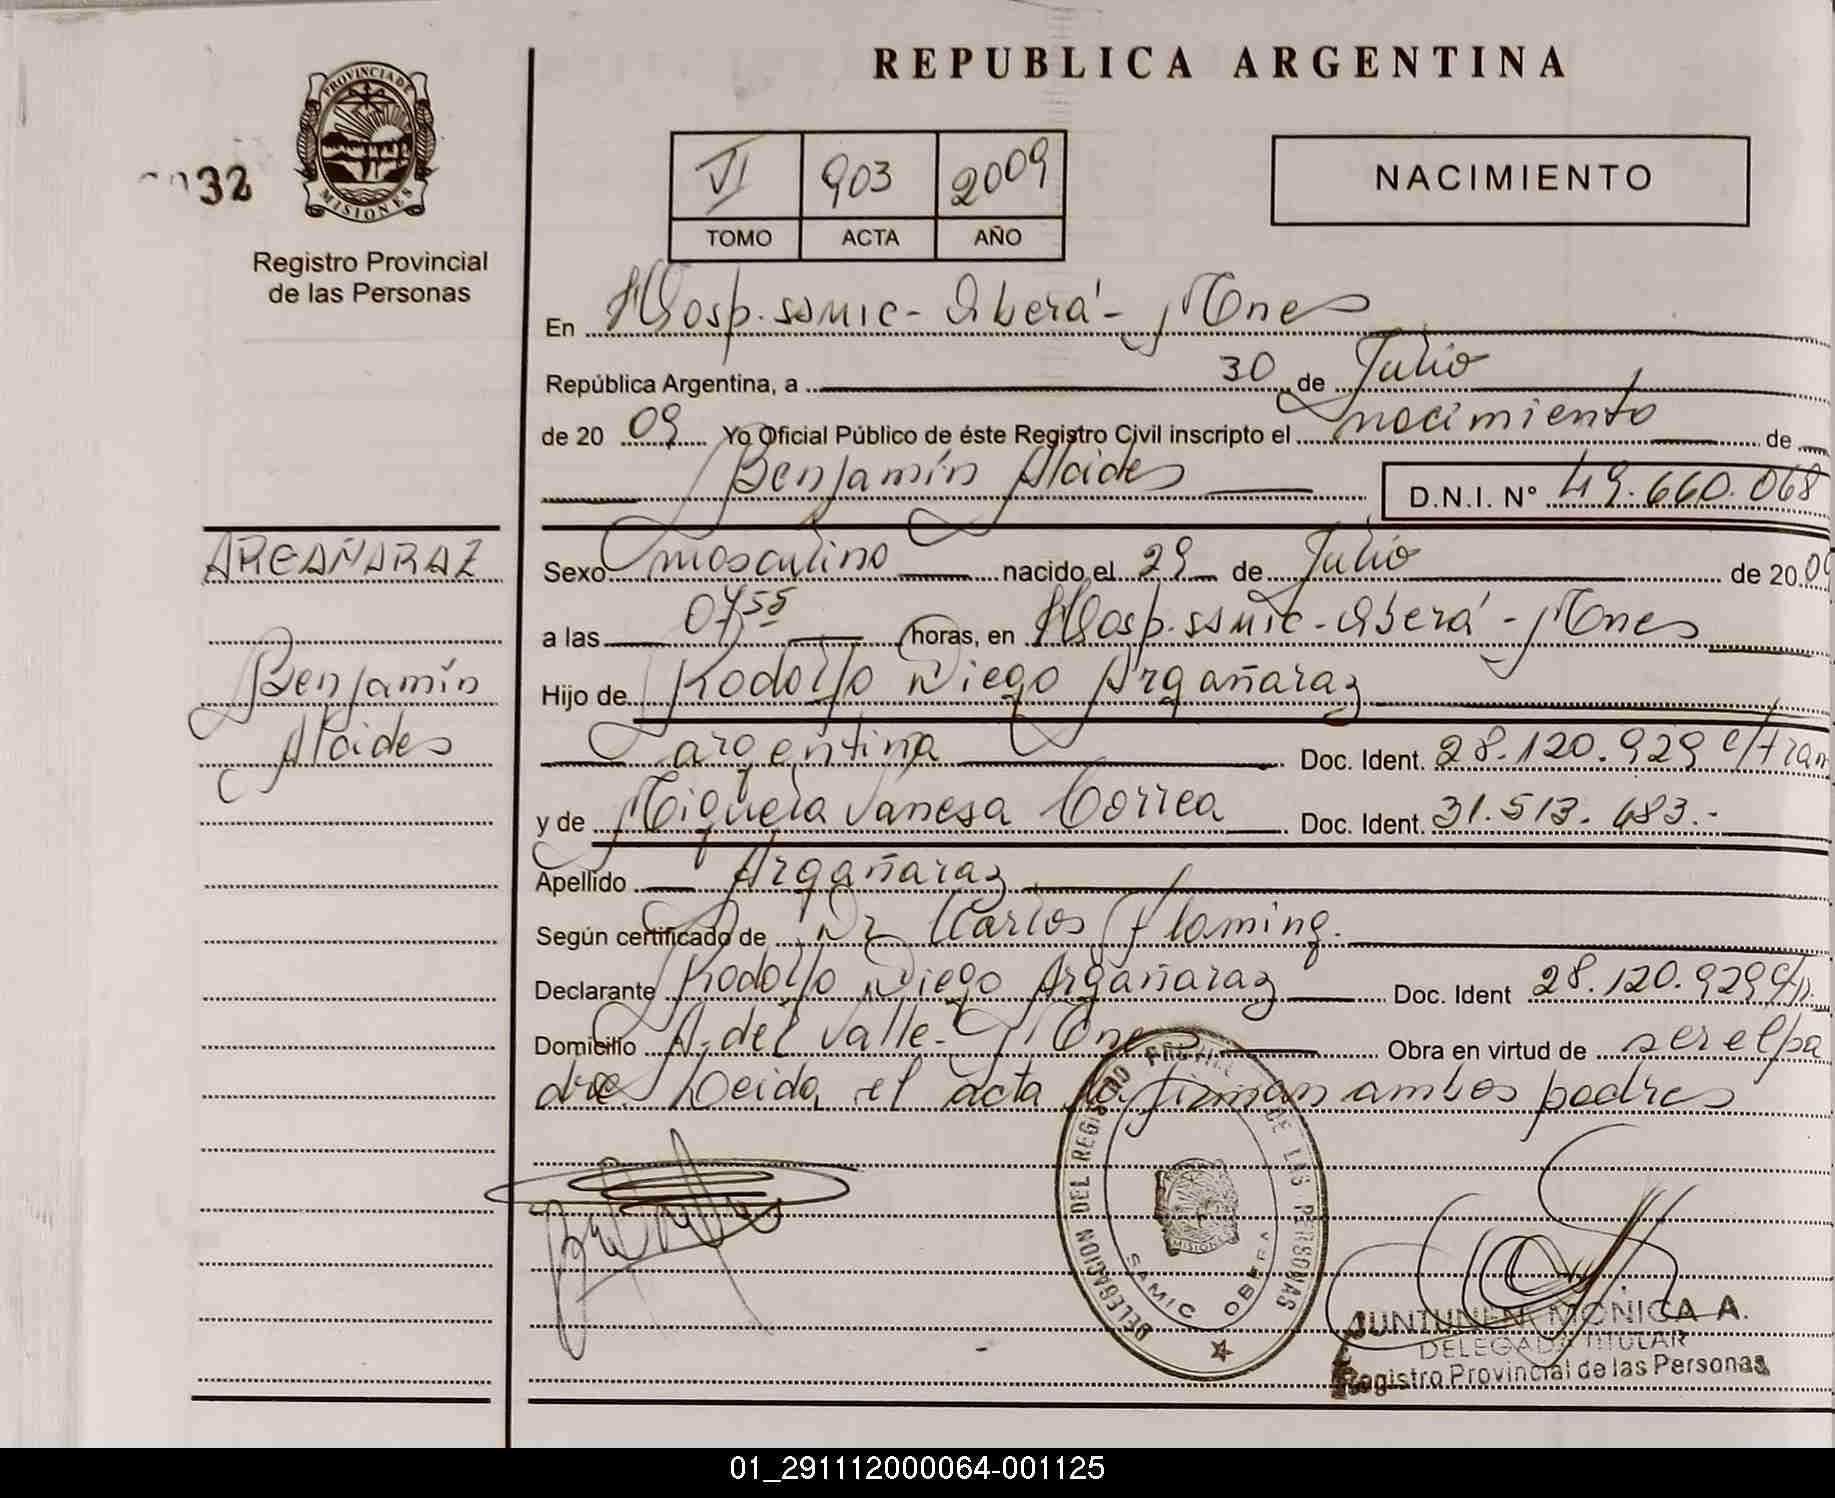 REPUBLICA ARGENTINA
PROVINCIA DE
MISIONES
32
Registro Provincial
de las Personas
VI 903 2009
TOMO ACTA AÑO
NACIMIENTO
En Hosp. SAMIC - Oberá - Mnes
República Argentina, a 30 de Julio
de 20 09 Yo Oficial Público de éste Registro Civil inscripto el nacimiento de
Benjamín Alcides D.N.I. N° 49.660.068
ARGAÑARAZ
Benjamín
Alcides
Sexo masculino nacido el 29 de Julio de 20.09
a las 07 55 horas, en Hosp. SAMIC - Oberá - Mnes
Hijo de Rodolfo Diego Argañaraz
argentina Doc. Ident. 28.120.929 c/tram
y de Miguela Vanesa Correa Doc. Ident. 31.513.483.-
Apellido Argañaraz
Según certificado de Dr Carlos Flaming.
Declarante Rodolfo Diego Argañaraz Doc. Ident 28.120.929
Domicilio A. del Valle - Mnes Obra en virtud de ser el pa
dre. Leida el acta la firman ambos padres
DELEGACION DEL REGISTRO PROVINC DE LAS PERSONAS
SAMIC OBERA
MISIONES
JUNTUNEN MONICA A.
DELEGADA TITULAR
Registro Provincial de las Personas
01_291112000064-001125